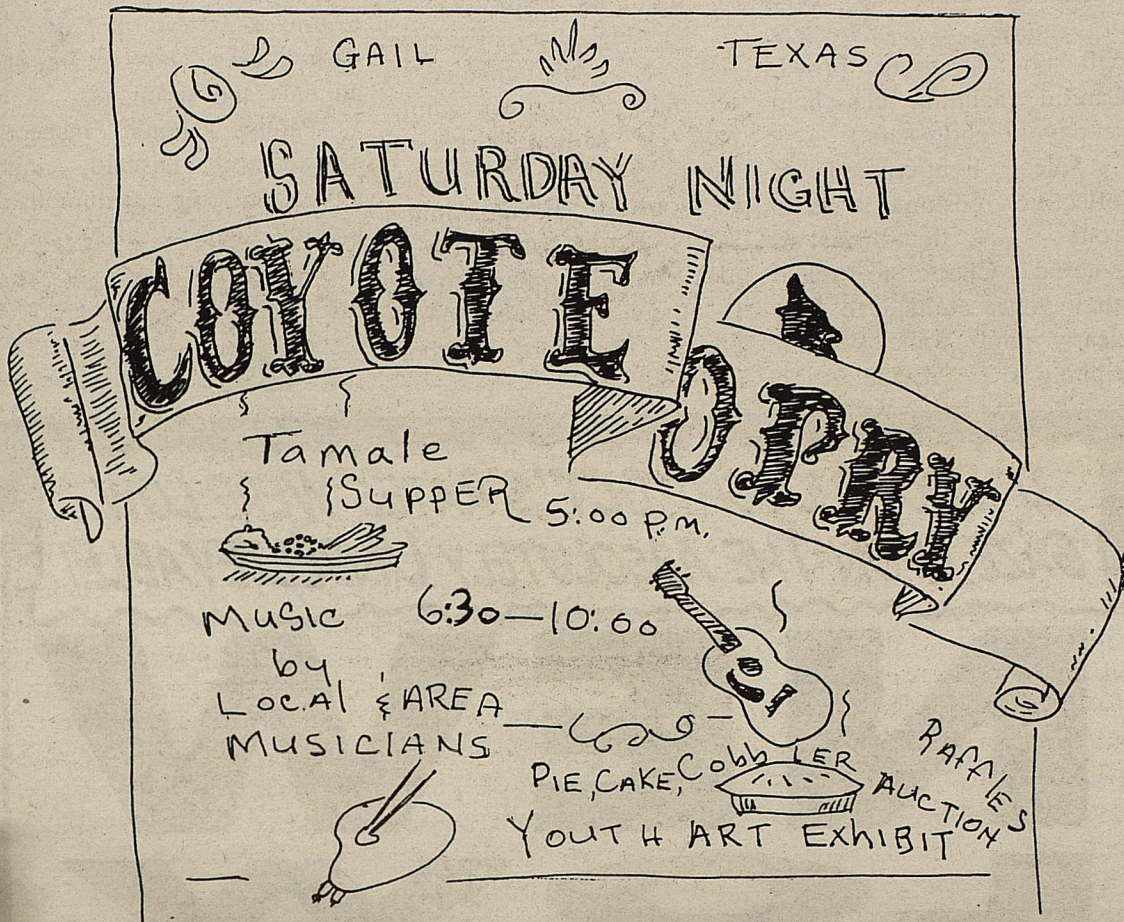 GAIL TEXAS
SATURDAY NIGHT
COYOTE
OPRY
Tamale
SUPPER 5:00 P.M.
MUSIC 6:30—10:00
by
LOCAl & AREA
MUSICIANS
PIE, CAKE, Cobb LER
RAFFLES
AUCTION
YOUTH ART ExhIBIT